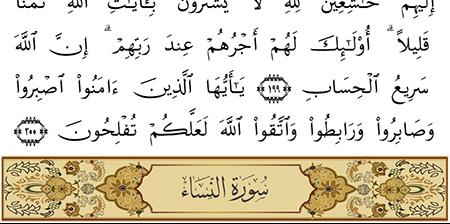 إِلَيْهِمْ خَٰشِعِينَ لِلَّهِ لَا يَشْتَرُونَ بِـَٔايَٰتِ ٱللَّهِ ثَمَنًا
قَلِيلًا ۗ أُو۟لَٰٓئِكَ لَهُمْ أَجْرُهُمْ عِندَ رَبِّهِمْ ۗ إِنَّ ٱللَّهَ
سَرِيعُ ٱلْحِسَابِ ١٩٩ يَٰٓأَيُّهَا ٱلَّذِينَ ءَامَنُوا۟ ٱصْبِرُوا۟
وَصَابِرُوا۟ وَرَابِطُوا۟ وَٱتَّقُوا۟ ٱللَّهَ لَعَلَّكُمْ تُفْلِحُونَ ٢٠٠
سُورَةُ النِّسَاءِ